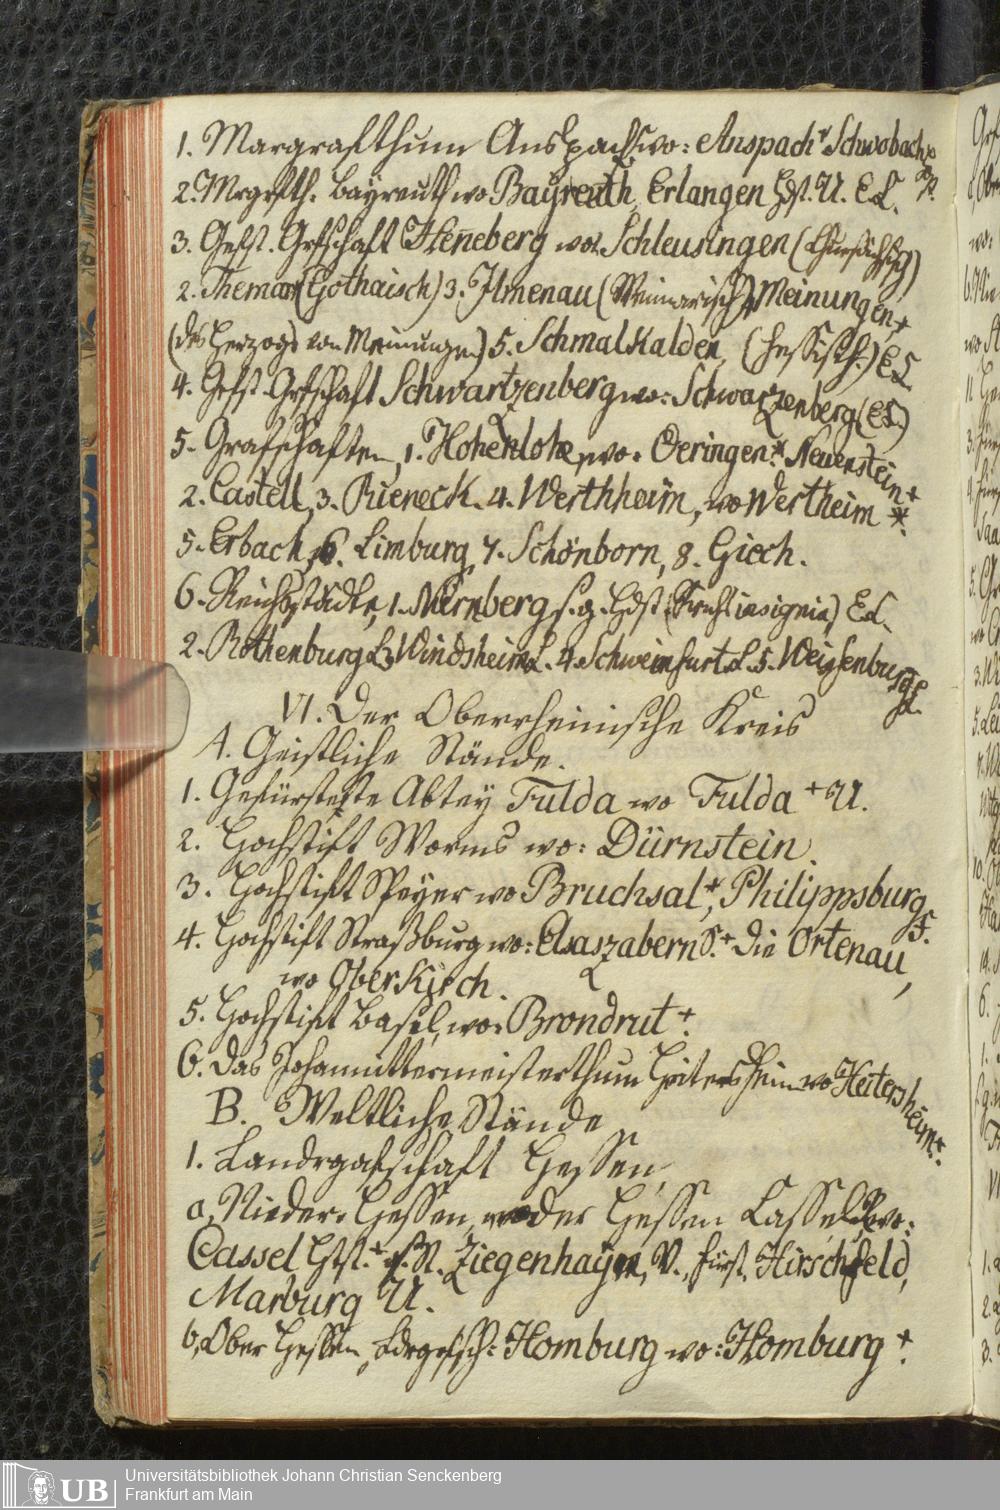 1. Margrafthum Anspach, wo: Anspach* Schwobach
2. Mrgrfth. Bayreuth wo Bayreuth, Erlangen Hdst. U. E L.
3. Gefst. Grfschaft Henneberg wo 1. Schleusingen (Chursächsisch)
2. Themar (Gothaisch) 3. Ilmenau (Weimarisch) 4. Meinungen+
(des Herzogs von Meinungen) 5. Schmalkalden, (Hessisch.) E L
4. Gefst. Grfschaft Schwartzenberg wo: Schwarzenberg (E L.)
5. Grafschaften, 1. Hohenlohe, wo: Oeringen* Neuenstein+
2. Castell, 3. Rieneck. 4. Werthheim, wo Wertheim *.
5. Erbach, 6. Limburg, 7. Schönborn, 8. Giech.
6. Reichsstädte, 1. Nürnberg s. g. Hdst. (Reichsinsignia) E L.
2. Rothenburg L. 3. Windsheim L. 4. Schweinfurt L. 5. Weissenburg L.
VI. Der Oberrheinische Kreis
A. Geistliche Stände.
1. Gefürstete Abtey Fulda wo Fulda + U.
2. Hochstift Worms wo: Dürnstein.
3. Hochstift Speyer wo Bruchsal+, Philippsburg F.
4. Hochstift Straßburg wo: Elsaszabern S.+ die Ortenau,
wo Oberkirch.
5. Hochstift Basel, wo: Brondrut +.
6. Das Johannittermeisterthum Heitersheim wo Heitersheim+.
B. Weltliche Stände
1. Landgrafschaft Hessen,
a, Nieder-Hessen, oder Hessen Cassel, wo:
Cassel Hst.+ s. N. Ziegenhayn, V., fürst. Hirschfeld,
Marburg U.
b, Ober Hessen, Ldrgrfsch: Homburg wo: Homburg +.
Universitätsbibliothek Johann Christian Senckenberg
Frankfurt am Main
UB